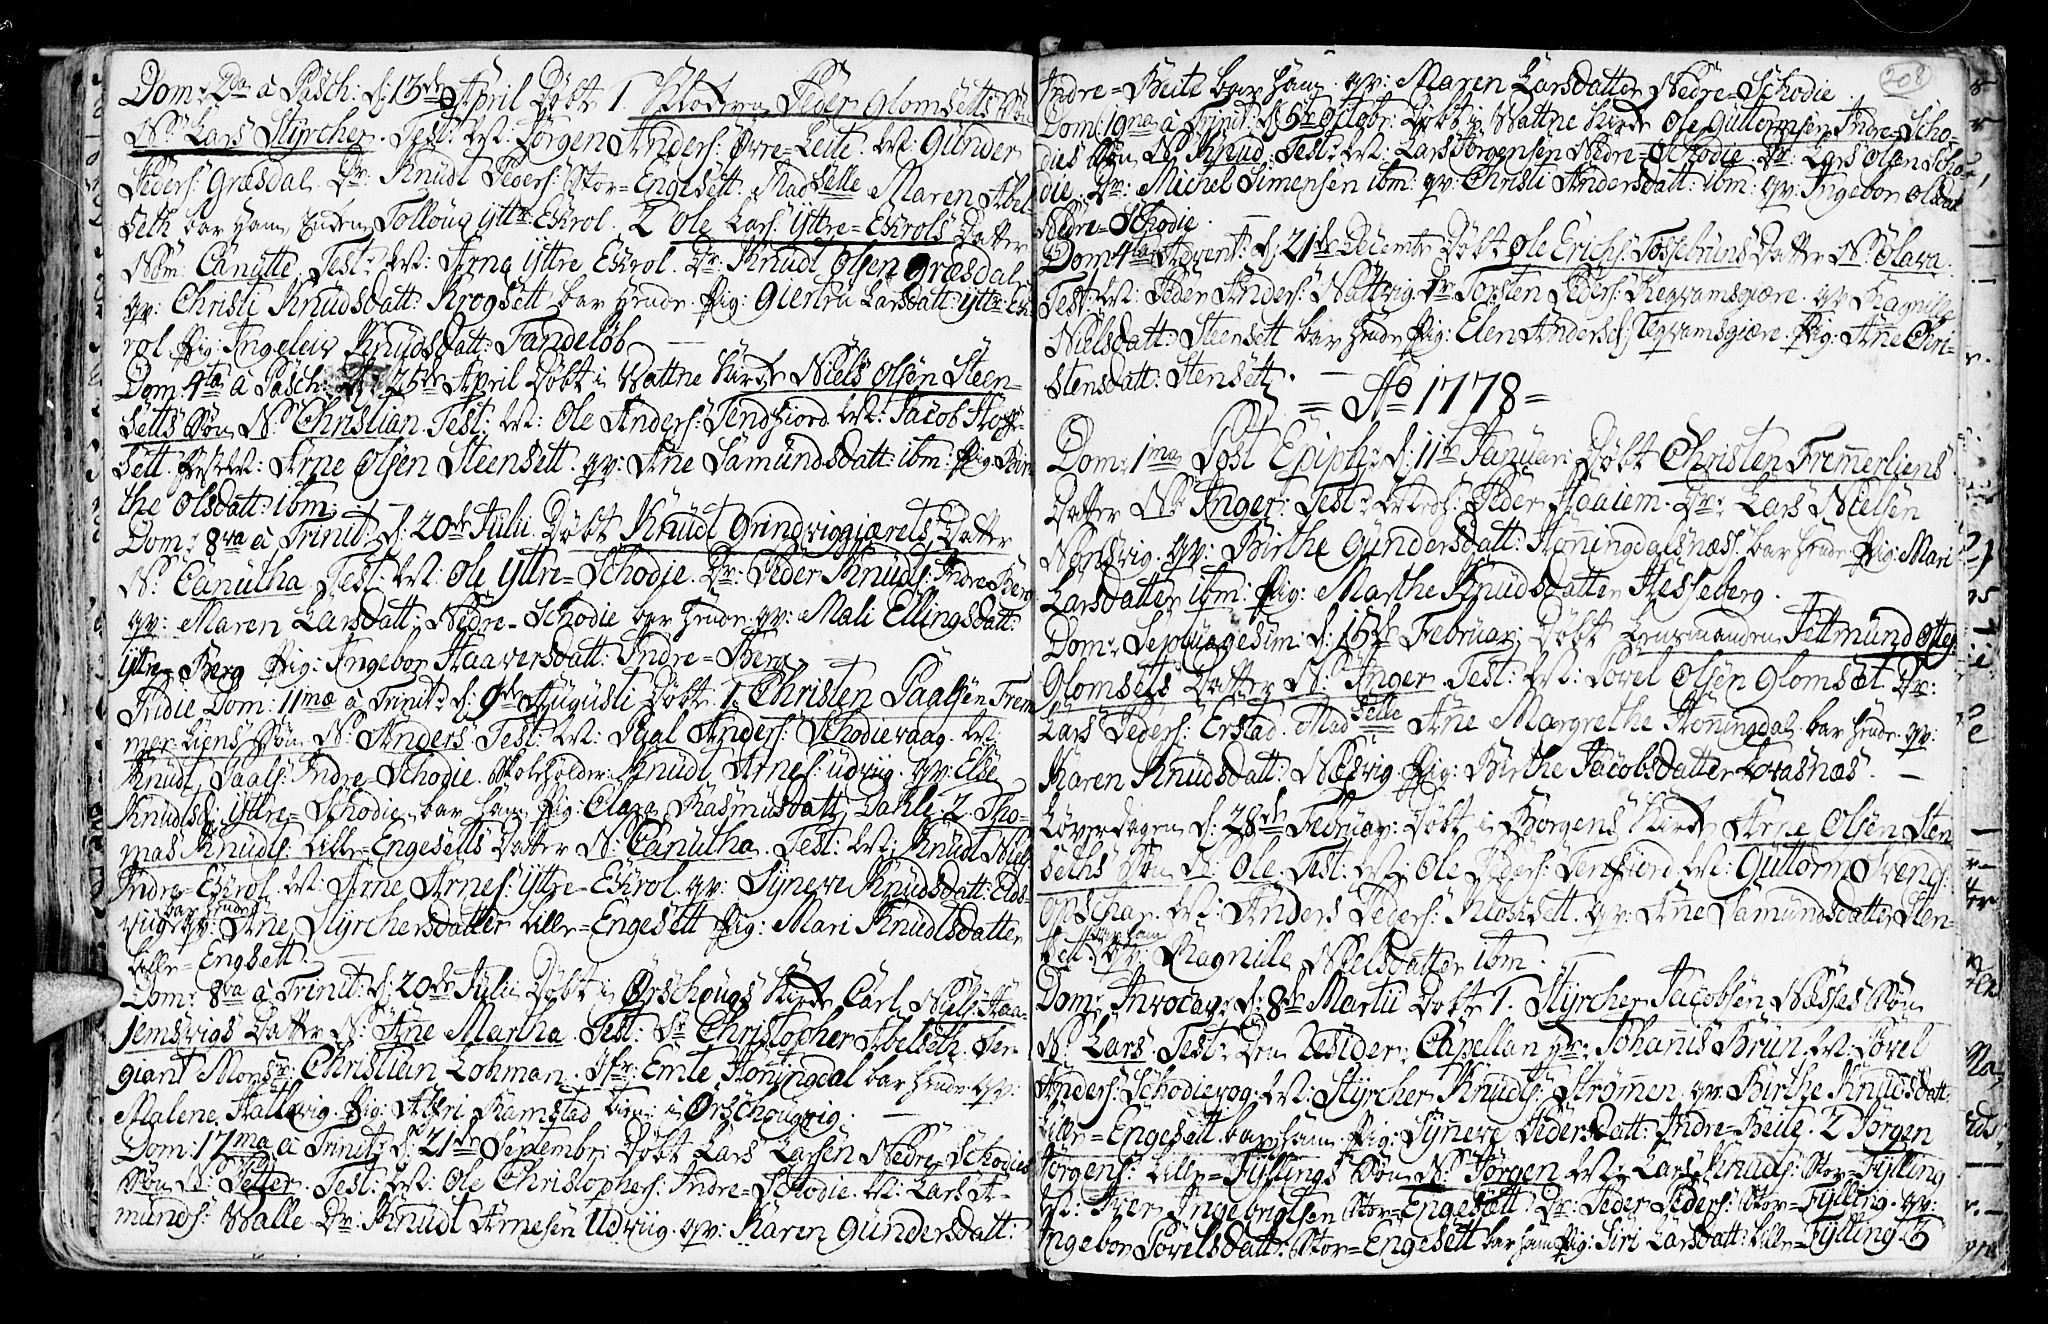 Dom: 2da à Pasch: d: 13de April Døbt 1. Peder Glomsetts Søn
N: Lars Styrcher. Test: M: Jørgen Anders: Øvre=Leite. M: Gunder
Peders: Græsdal. Dr: Knudt Peders: Stor=Engesett. Madselle Maren Abel-
seth bar ham Tolloug yttr Eskrol. 2 Ole Lars: Yttre=Eskrols Datter
Nom: Canutte. Test: M: Arne Yttre Eskrol. Dr: Knudt Olsen Græsdal.
qv: Christi Knudsdatt: Krogsett bar hende. Pig: Gientru Larsdatt: yttr Esk
rol. Pig: Ingeleiv Knudsdatt: Fandeløb.
Dom: 4ta à Pasch: d: 25de April Døbt i Vattne Kirke Niels Olsen Steen-
setts Søn N: Christian. Test: M: Ole Anders: Tendfiord. M: Jacob
sett. M: Arne Olsen Steensett. qv: Ane Samundsdatt: ibm: Pig: Bir
the Olsdatt: ibm.
Dom: 8va à Trinit: d: 20de Julii Døbt Knudt Grindviggiærets Datter
N: Canutha. Test: M: Ole Yttre=Schodje. Dr: Peder Knuds: Indre Berg
qv: Maren Larsdatt: Nedre=Schodie bar hende. qv: Mali Ellingsdatt:
Yttre=Berg Pig: Ingebor Haaversdatt: Indre=Berg.
Fridie Dom: 11mæ à Trinit: d: 9de Augusti Døbt 1. Christen Paalsen Frem
mer-Liens Søn N: Anders. Test: M: Paal Anders: Schodievaag. M:
Knudt Paals: Indre Schodie. Skoleholder: Knudt Arnes: Udviig. qv: Else
Knudtsd: Yttre=Schodie bar ham. Pig: Clara Rasmusdatt: Dahle. 2 Tho-
mas Knuds: Lille=Engesetts Datter N: Canutha. Test: M: Knudt Niels:
Indre Eskrol. M: Arne Arnes: Yttre=Eskrol. qv: Syneve Knudsdatt: Eids-
viig bar hende qv: Ane Styrchersdatter Lille=Engesett Pig: Mari Knudtsdatter
Lille=Engsett.
Dom: 8va à Trinit: d: 20de Julii Døbt i Ørschougs Kirke Carl Niels: Haa-
jemsvigs Datter N: Ane Martha. Test: Sr Christopher Abelseth. Ser
giant Monsr: Christian Lohman. Jfr: Emte Honingdal bar hende. qv:
Malene Hattlevig. Pig: Asfri Ramstad tien: i Ørschougvig.
Dom: 17ma à Trinit: d: 21de Septembr: Døbt Lars Larsen Nedre Schodies
Søn N: Petter. Test: M: Ole Christophers: Indre=Schodie. M: Lars A-
munds: Walle. Dr: Knudt Arnesen Udviig. qv: Karen Gundersdatt:
208
Indre=Beite bar ham. qv: Maren Larsdatter Nedre=Schodie.
Dom: 19na à Trinit: d: 5te Octobr: Døbt i Wattne Kirke Ole Guttormsen Indre=Scho-
dies Søn N: Knud. Test: M: Lars Jørgensen Nedre=Schodie. Dr: Lars Olsen Scho-
die. Dr: Michel Simensen ibm: qv: Christi Andersdatt: ibm: qv: Ingebor Olsdat
Nedre=Schodie.
Dom 4ta Advent: d: 21de Decembr Døbt Ole Erichs: Fossebruns Datter N: Olava.
Test: M: Peder Anders: Nattvig. Dr Torsten Peders: Tegvamsgiære. qv Ragnille
Nielsdatt: Steensett bar hende Pig: Elen Andersd: Tegvamsgiære. Pig: Ane Chri-
stensdatt: Stensett.
= Ao 1778 =
Dom: 1ma Post Epiph: d: 11te Januari Døbt Christen Fremerliens
Datter N: Inger. Test: Peder Haaiem. Dr: Lars Nielsen
Nørsvig. qv: Birthe Gundersdatt: Honingdalsnæs. bar hende Pig: Mari
Larsdatter ibm: Pig: Marthe Knudsdatter Hesseberg.
Dom: Septuagesim: d: 15de Februar: Døbt Lensmanden Jettmund Ottes:
Glomsets Datter N: Inger. Test: M: Povel Olsen Glomset. Dr:
Lars Peders: Erstad. Madselle Ane Margrethe Honingdal bar hende. qv:
Karen Knudsdatt: Næsvig. Pig: Birthe Jacobsdatter Lovasnæs.
Løverdagen d: 28de Februar: Døbt i Borgens Kirke Arne Olsen Sten
seths Søn N: Ole. Test: M: Ole Peders: Tenfiord. M: Guttorm Svends:
Opschar. M: Anders Peders: Klocksett. qv: Ane Samundsdatter Sten-
sett bar ham qv: Ragnille Nielsdatter ibm.
Dom: Invocav: d: 8de Martii Døbt 1. Styrcher Jacobsen Næsses Søn
N: Lars. Test: Den Resider: Capellan Hr: Johannis Brun. M: Povel
Anders: Schodievog. M: Styrcher Knuds: Strømen. qv: Birthe Knudsdatt:
Lille=Engesett bar ham. Pig: Syneve Pedersdatt: Indre=Beite. 2 Jørgen
Jørgens: Lille=Fyllings Søn N: Jørgen. M: Lars Knuds: Stor=Fylling
M: Iver Ingebrigtsen Stor=Engesett. Dr: Peder Peders: Stor=Fylling. qv:
Ingebor Povelsdatt: Stor=Engesett bar ham Pig: Siri Larsdatt: Lille=Fylling. 3